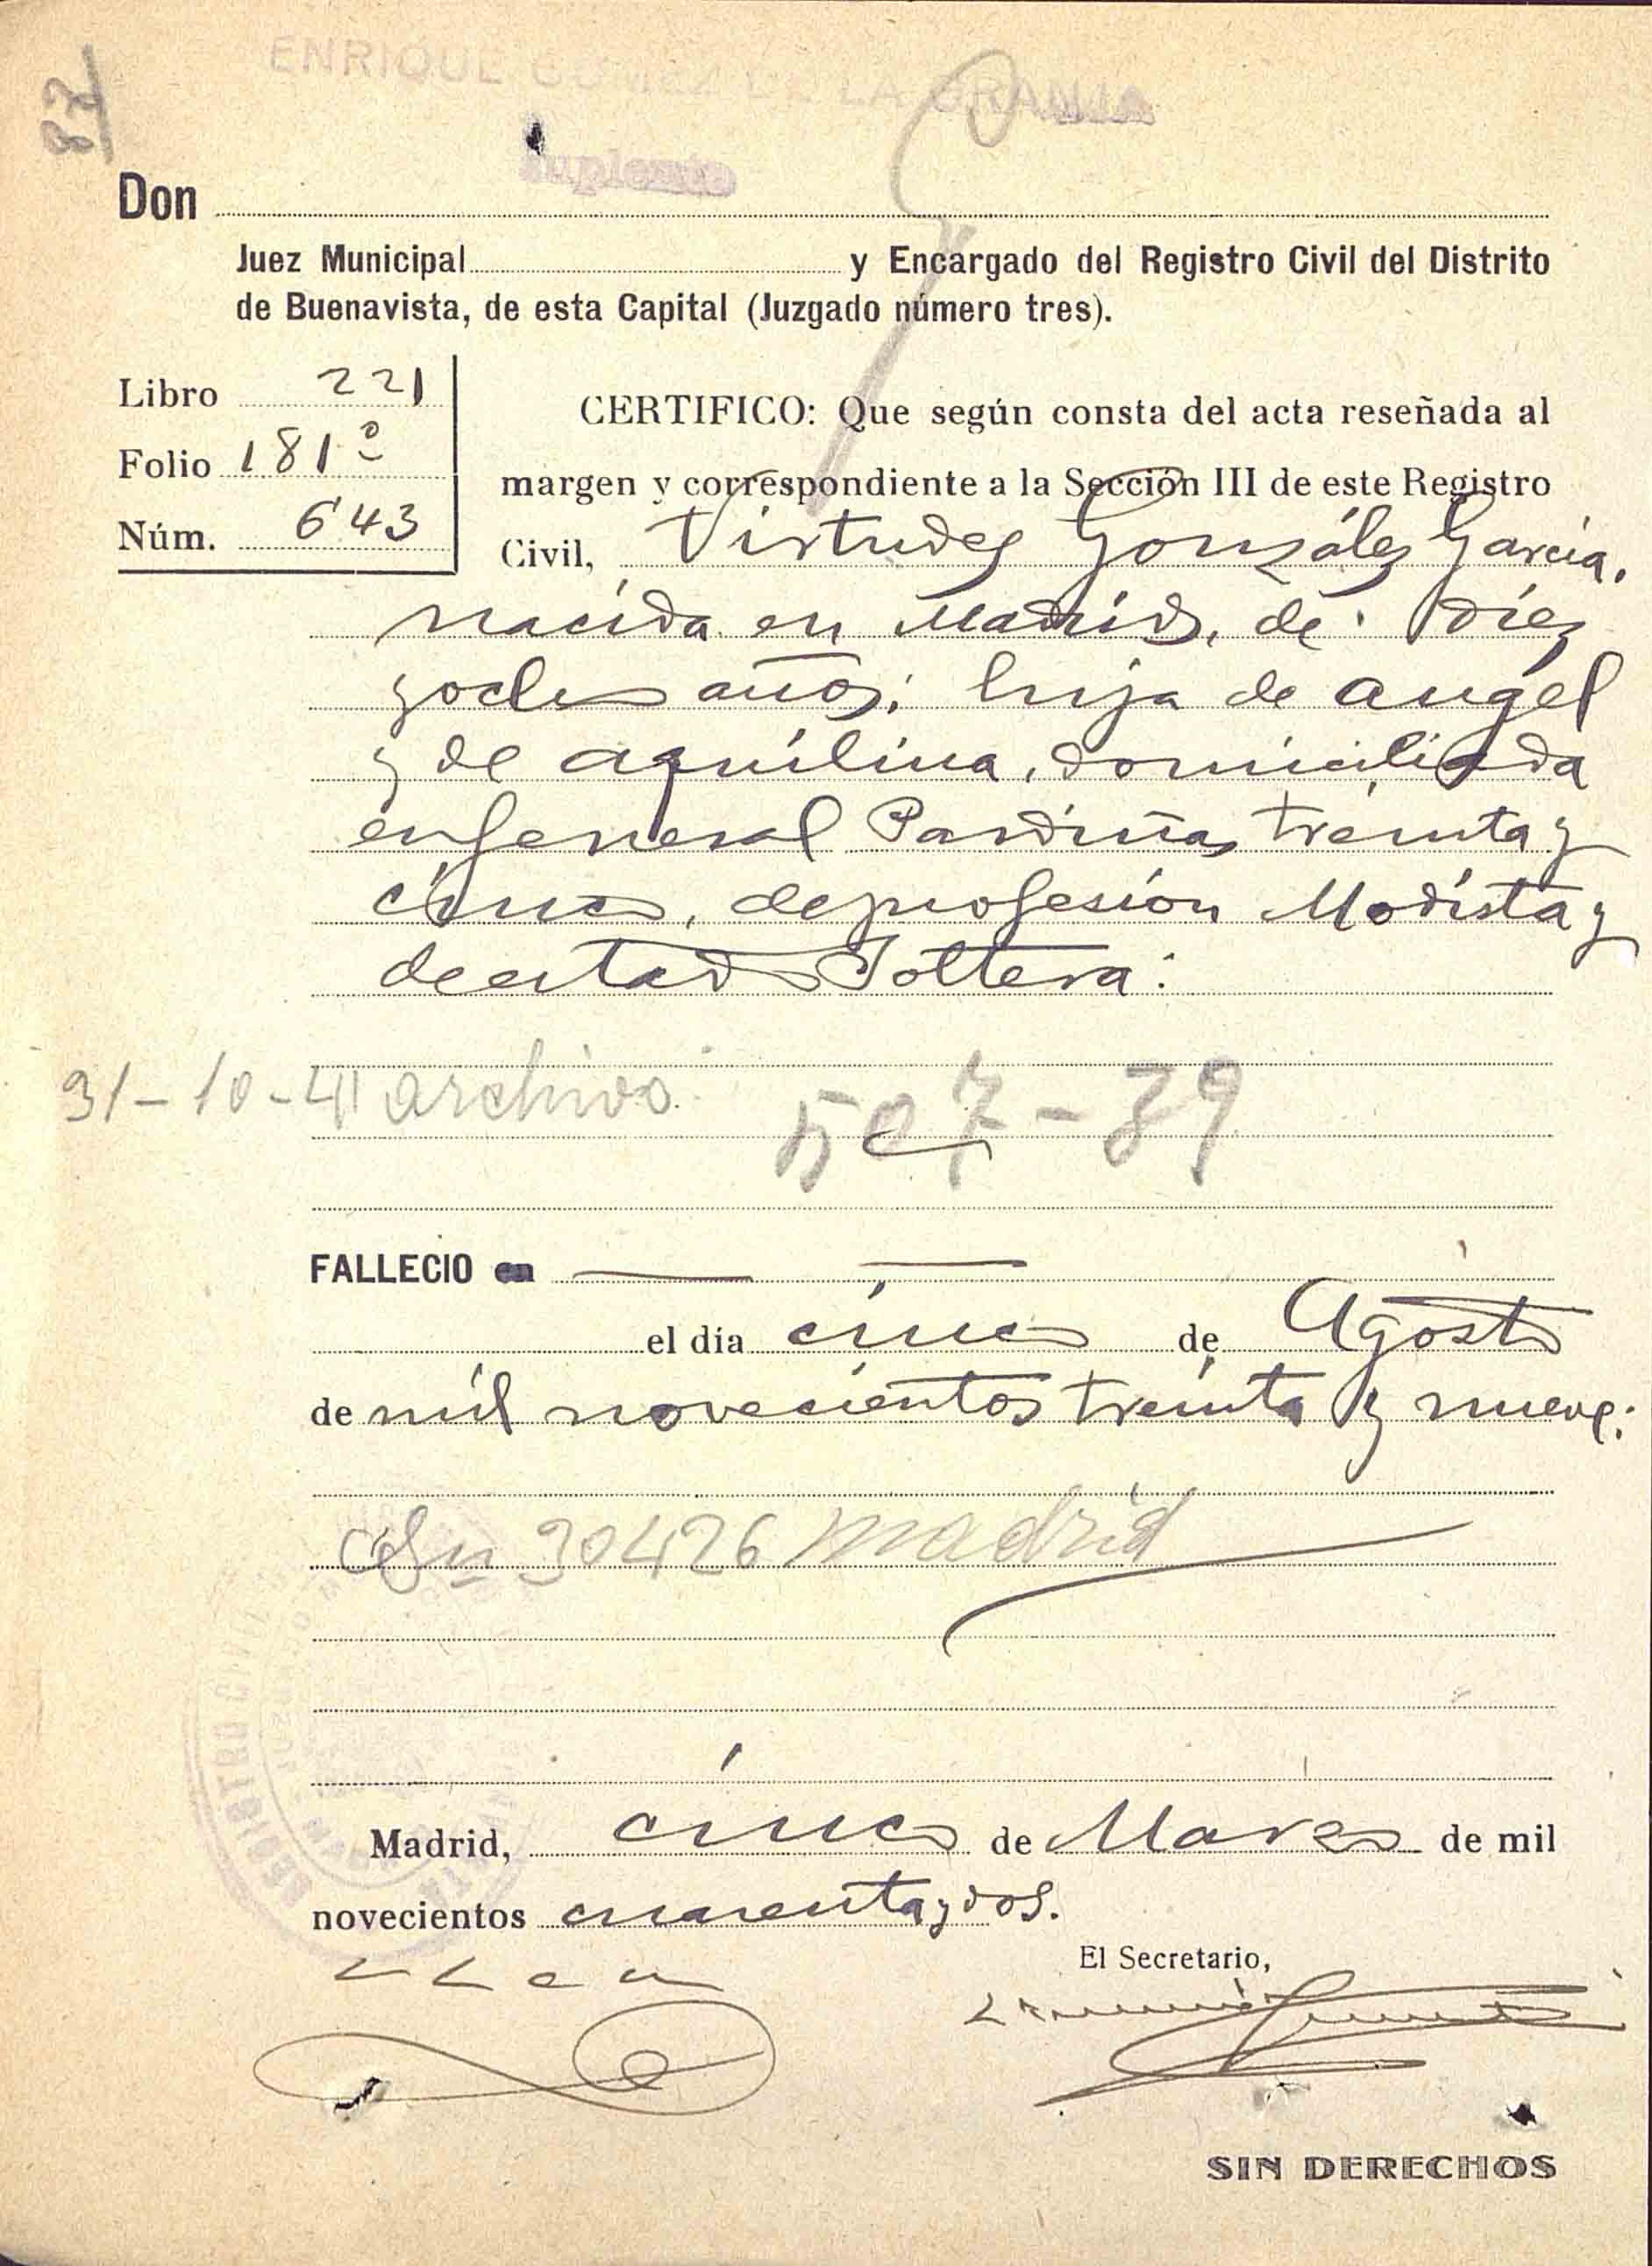 87
ENRIQUE GOMEZ DE LA GRANJA
Suplente
Don
Juez Municipal y Encargado del Registro Civil del Distrito
de Buenavista, de esta Capital (Juzgado número tres).
Libro 221
Folio 181º
Núm. 643
CERTIFICO: Que según consta del acta reseñada al
margen y correspondiente a la Sección III de este Registro
Civil, Virtudes González García,
nacida en Madrid, de diez
y ocho años; hija de Angel
y de Aquilina, domiciliada
en General Pardiñas treinta y
cinco, de profesión Modista y
de estado Soltera:
31-10-41 archivo. 507-39
FALLECIO en
el día cinco de Agosto
de mil novecientos treinta y nueve:
30426 Madrid
Madrid, cinco de Marzo de mil
novecientos cuarenta y dos.
El Secretario,
SIN DERECHOS